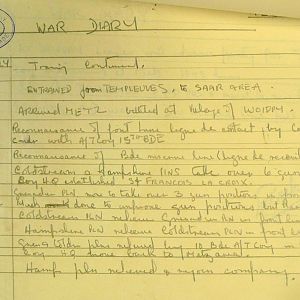 WAR DIARY
Training Continued.
ENTRAINED from TEMPLEUVES, to SAAR AREA.
Arrived METZ billeted at Village of WOIPPY.
Reconnaissance of front line ligne de contact, by Co
Comdr with A/T Coy 15th BDE
Reconnaissance of Bde reserve line (ligne de recueil
Coldstream & Hampshire PLNS take over 6 gun
Coy HQ established St FRANCOIS LA CROIX.
Grenadier PLN now to take over 3 gun positions in fron
Much done to improve gun positions, but
Coldstream PLN relieve Grenadier PLN in front line
Hampshire PLN relieve Coldstream PLN in front
Grens Coldm plns relieved by 10 Bde A/T Coy in
Coy HQ move back to
Hamp pln relieved & rejoin company.